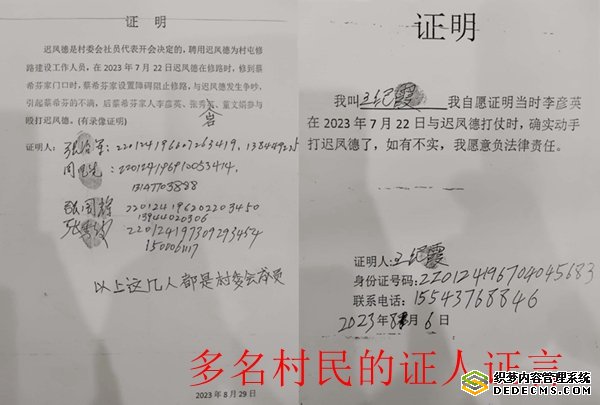 证 明
迟凤德是村委会社员代表开会决定的，聘用迟凤德为村屯修
路建设工作人员，在 2023 年 7 月 22 日迟凤德在修路时，修到蔡
希芬家门口时，蔡希芬家设置障碍阻止修路，与迟凤德发生争吵，
引起蔡希芬的不满，后蔡希芬家人李彦英、张秀、董文娟参与
殴打迟凤德。(有录像证明)
证明人：
220124196910053414.
13147703888
220124196202203450
13944020306
220124197309293454
以上这几人都是村委会成员
2023 年 8 月 29 日
证明
我叫王纪霞 我自愿证明当时李彦英
在 2023 年 7 月 22 日与迟凤德打仗时，确实动手
打迟凤德了，如有不实，我愿意负法律责任。
证明人：王纪霞
身份证号码：220124196704045683
联系电话：15543768846
2023年8月6日
多名村民的证人证言
织梦内容管理系统
DEDECMS.COM